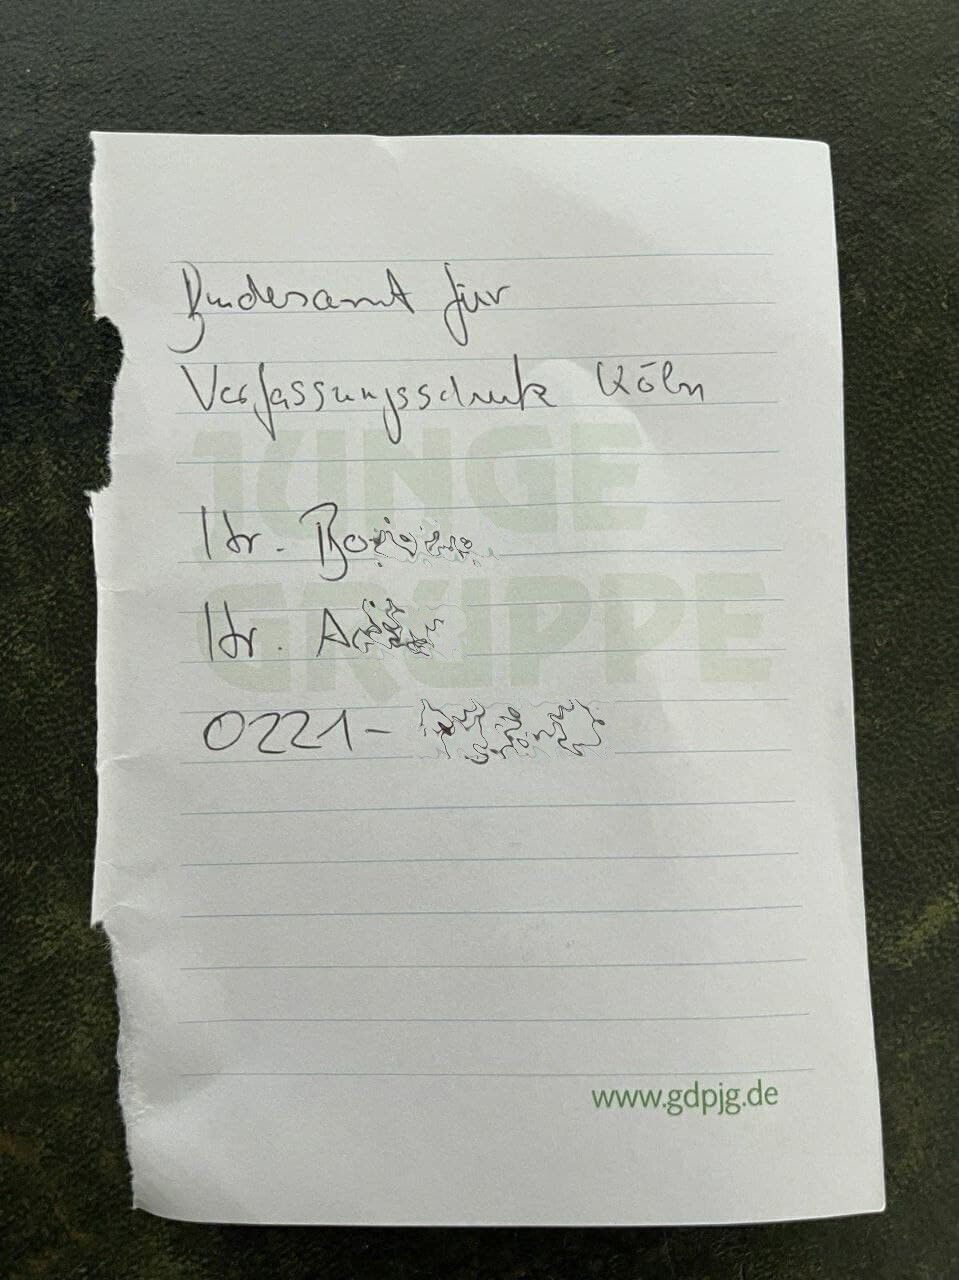 Bundesamt für
Verfassungsschutz Köln
JUNGE
Hr.
GRUPPE
Hr.
0221-
www.gdpjg.de